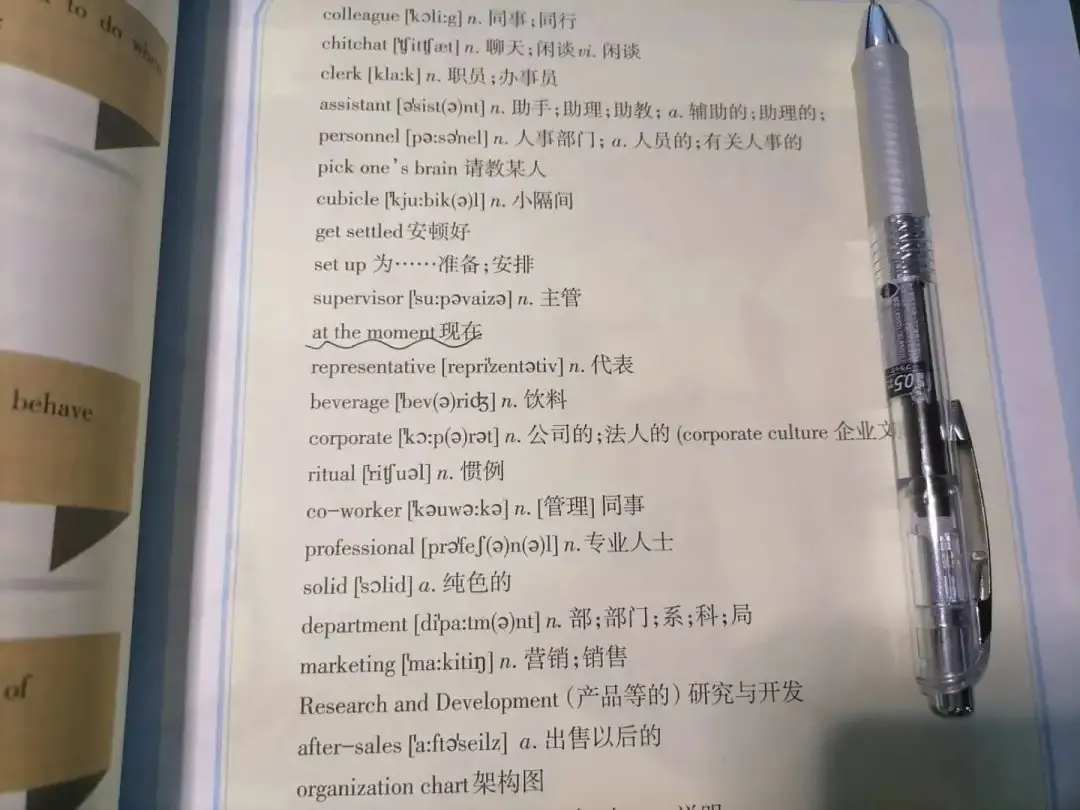 to do when
behave
of
colleague ['kɔli:g] n. 同事;同行
chitchat ['ʧitʧæt] n. 聊天;闲谈 vi. 闲谈
clerk [kla:k] n. 职员;办事员
assistant [ə'sist(ə)nt] n. 助手;助理;助教; a. 辅助的;助理的;
personnel [pə:sə'nel] n. 人事部门; a. 人员的;有关人事的
pick one's brain 请教某人
cubicle ['kju:bik(ə)l] n. 小隔间
get settled 安顿好
set up 为……准备;安排
supervisor ['su:pəvaizə] n. 主管
at the moment 现在
representative [repri'zentətiv] n. 代表
beverage ['bev(ə)riʤ] n. 饮料
corporate ['kɔ:p(ə)rət] n. 公司的;法人的 (corporate culture 企业文
ritual ['riʧuəl] n. 惯例
co-worker ['kəuwə:kə] n. [管理] 同事
professional [prə'feʃ(ə)n(ə)l] n. 专业人士
solid ['sɔlid] a. 纯色的
department [di'pa:tm(ə)nt] n. 部;部门;系;科;局
marketing ['ma:kitiŋ] n. 营销;销售
Research and Development (产品等的) 研究与开发
after-sales ['a:ftə'seilz] a. 出售以后的
organization chart 架构图
0.5